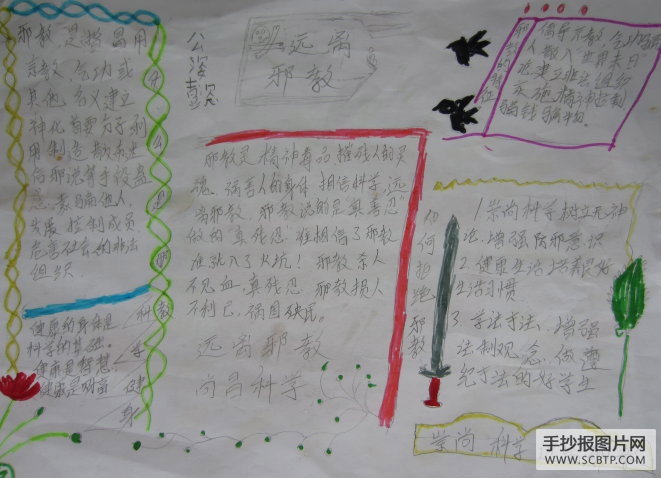 邪教是指冒用
宗教、气功或
其他名义建立
神化首要分子利
用制造散布迷
信邪说等手段蛊
惑、蒙骗他人、
发展、控制成员
危害社会的非法
组织
健康的身体是
科学的基础。
健康是财富
科教
学
健
身
远离
邪教
邪教是精神毒品摧残人的灵
魂、祸害人的身体 相信科学、远
离邪教 邪教说的是真善忍
做的真残忍 谁相信了邪教
谁就入了火坑! 邪教杀人
不见血、真残忍 邪教损人
不利己,祸国殃民。
远离邪教
尚昌科学
邪教的特征
实施精神控制
骗钱骗物。
如何拒绝邪教
1 崇尚科学树立无神
论、增强防邪意识
2 健康生活培养好
生活习惯
3. 学法守法、增强
法制观念、做遵
纪守法的好学生
崇尚 科学
手抄报图片网
WWW.SCBTP.COM